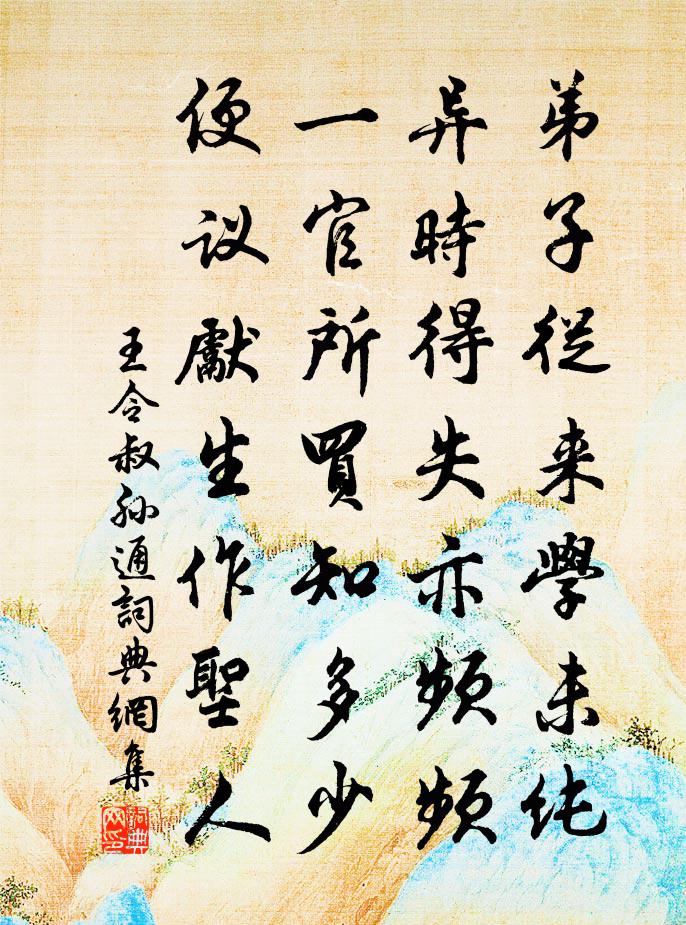 弟子從来學未纯
异時得失亦頻頻
一官所買知多少
便议獻生作聖人
王令叔孙通詞典網集
詞典網印